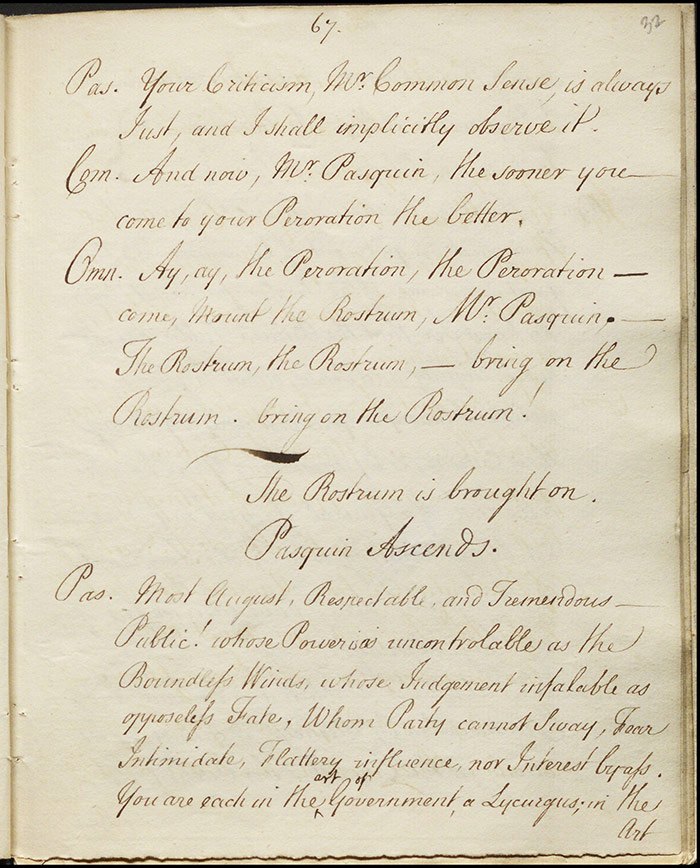 67.
32
Pas. Your Criticism, Mr. Common Sense, is always
Just, and I shall implicitly observe it.
Com. And now, Mr. Pasquin, the sooner you —
come to your Peroration the better.
Omn. Ay, ay, the Peroration, the Peroration —
come, Mount the Rostrum, Mr. Pasquin. —
The Rostrum, the Rostrum, — bring on the
Rostrum. bring on the Rostrum!
The Rostrum is brought on.
Pasquin Ascends.
Pas. Most August, Respectable, and Tremendous —
Public! whose Power is as uncontrolable as the
Boundless Winds, whose Judgement infalable as
opposeless Fate, Whom Party cannot Sway, Fear
Intimidate, Flattery influence, nor Interest byass.
art of
You are each in the ‸ Government, a Lycurgus; in the
Art